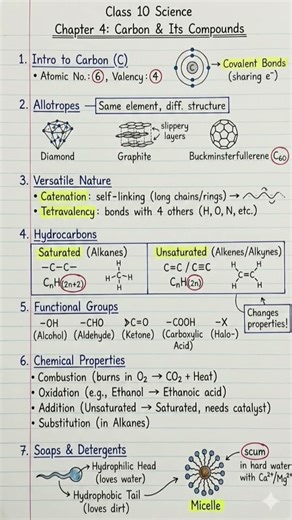 Class 10 Science
Chapter 4: Carbon & Its Compounds
1. Intro to Carbon (C)
• Atomic No.: 6, Valency: 4
C
→ Covalent Bonds
(sharing e⁻)
2. Allotropes – Same element, diff. structure
slippery
layers
Diamond
Graphite
Buckminsterfullerene C₆₀
3. Versatile Nature
• Catenation: self-linking (long chains/rings) →
• Tetravalency: bonds with 4 others (H, O, N, etc.)
4. Hydrocarbons
Saturated (Alkanes)
–C–C–
CₙH(2n+2)
H
H–C–H
H
Unsaturated (Alkenes/Alkynes)
C=C / C≡C
CₙH(2n)
H H
C=C
H H
Changes
properties!
5. Functional Groups
–OH –CHO >C=O –COOH –X
(Alcohol) (Aldehyde) (Ketone) (Carboxylic (Halo-)
Acid)
6. Chemical Properties
• Combustion (burns in O₂ → CO₂ + Heat)
• Oxidation (e.g., Ethanol → Ethanoic acid)
• Addition (Unsaturated → Saturated, needs catalyst)
• Substitution (in Alkanes)
7. Soaps & Detergents
Hydrophilic Head
(loves water)
Hydrophobic Tail
(loves dirt)
Micelle
scum
in hard water
with Ca²⁺/Mg²⁺